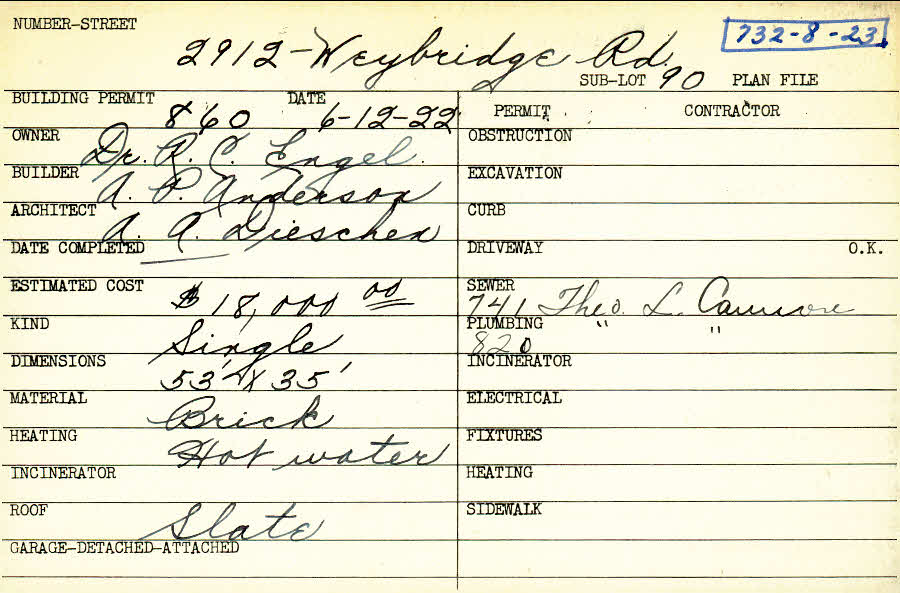 NUMBER-STREET
732-8-23
2912-Weybridge Rd.
SUB-LOT 90 PLAN FILE
BUILDING PERMIT 860 DATE 6-12-22
PERMIT CONTRACTOR
OWNER Dr. R. C. Engel.
OBSTRUCTION
BUILDER A. P. Anderson
EXCAVATION
ARCHITECT A. A. Dieschen
CURB
DATE COMPLETED
DRIVEWAY O.K.
ESTIMATED COST $18,000 00
SEWER 741 Theo. L.
KIND Single
PLUMBING 820 " "
DIMENSIONS 53' x 35'
INCINERATOR
MATERIAL Brick
ELECTRICAL
HEATING Hot water
FIXTURES
INCINERATOR
HEATING
ROOF Slate
SIDEWALK
GARAGE-DETACHED-ATTACHED